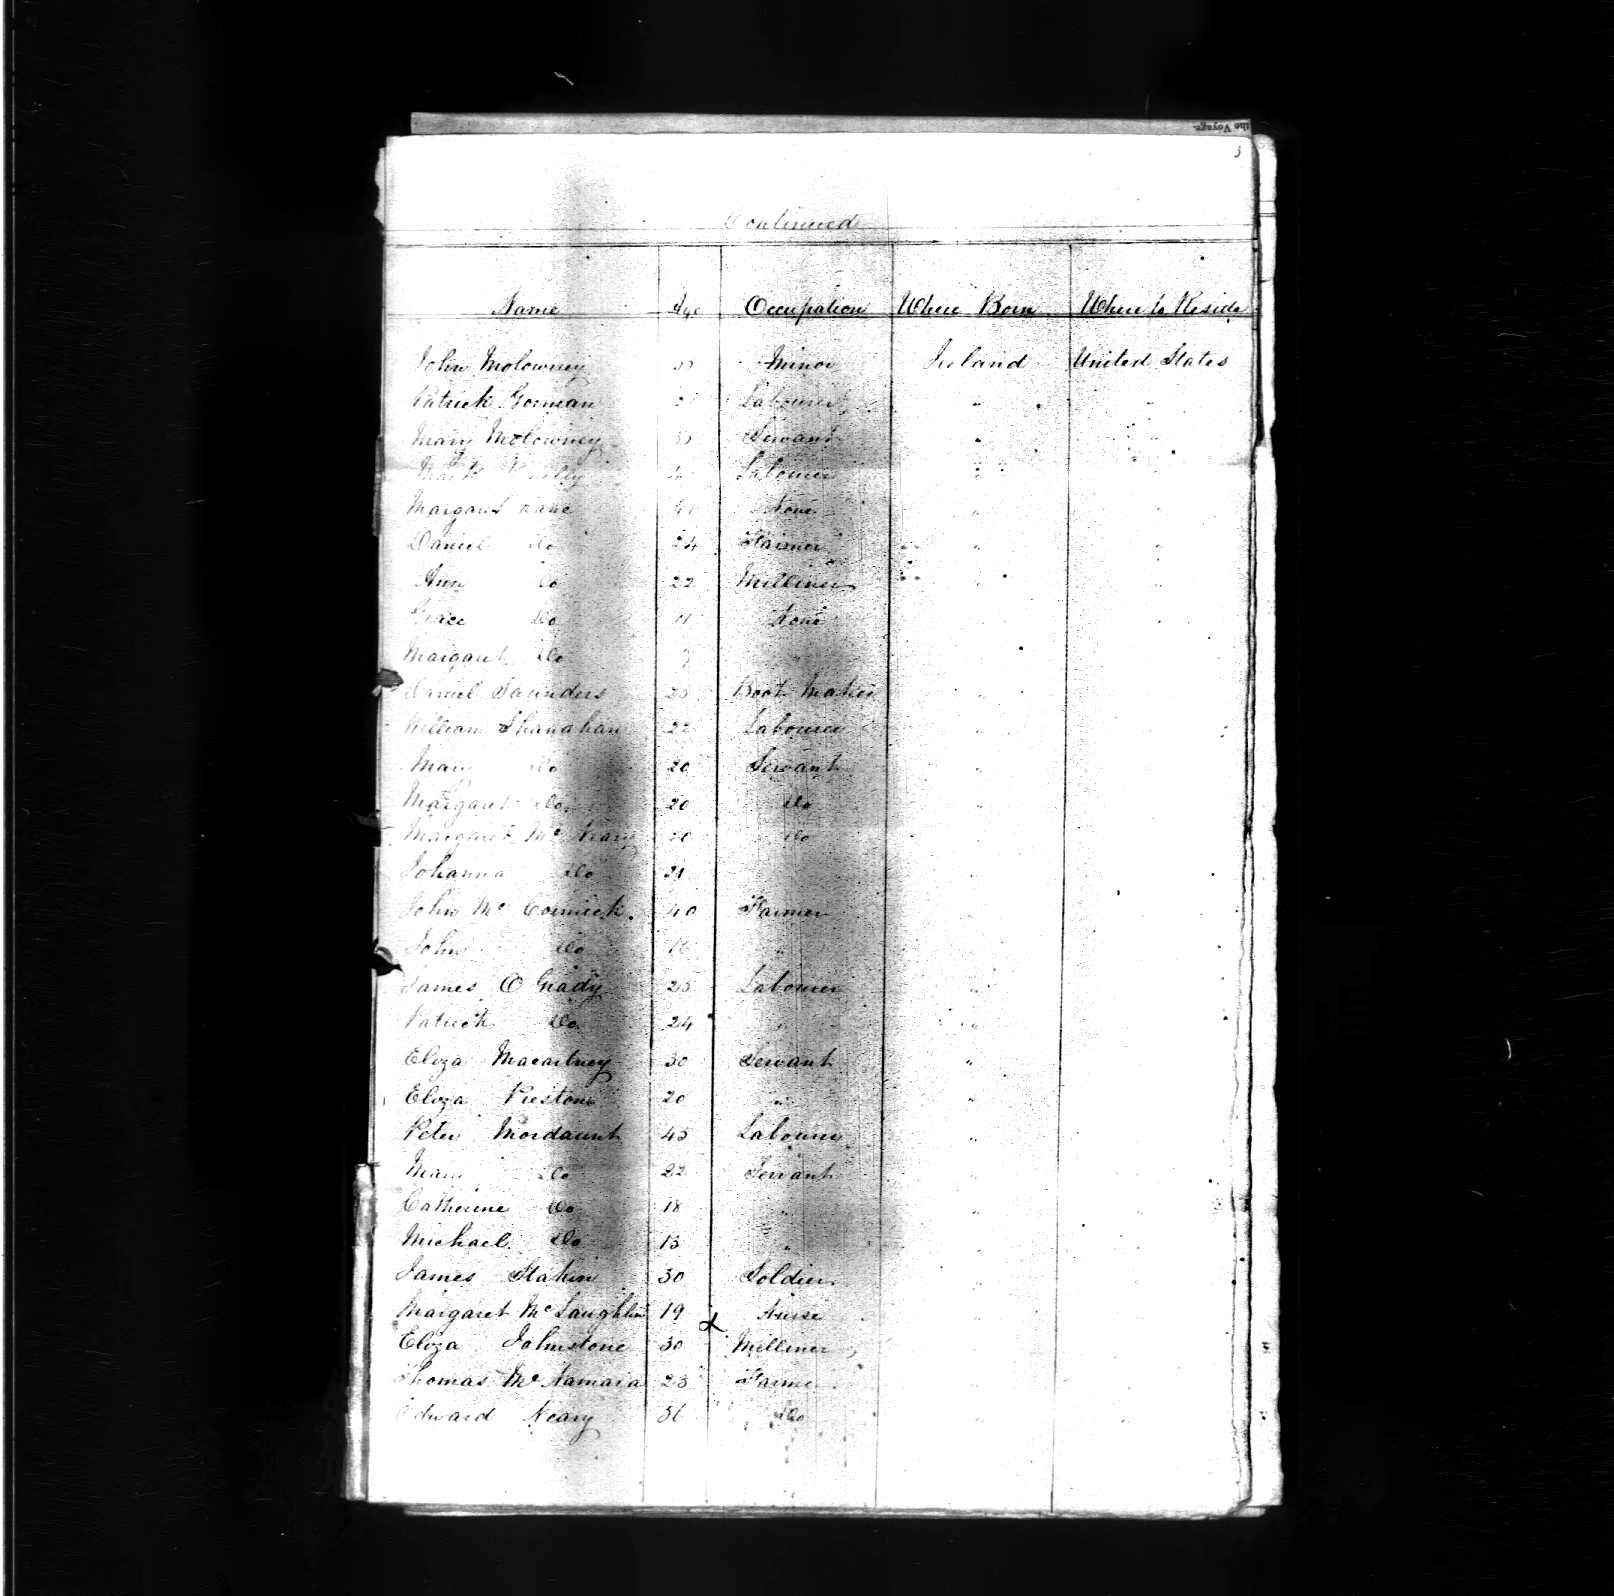 the Voyage.
3
Continued
Name Age Occupation Where Born Where to Reside
John Molowney Minor Ireland United States
Patrick Gorman Labourer " "
Mary Molowney Servant " "
Labourer "
Margaret Kane None " "
Daniel Do 24 Farmer " "
Ann Do 22 Milliner " "
Grace Do 11 None
Margaret Do "
Daniel Saunders 25 Boot Maker "
William Shanahan 22 Labourer "
Mary Do 20 Servant "
Margaret Do 20 Do "
Margaret Mc 20 Do "
Johanna Do 21 "
John Mc Cormick 40 Farmer "
John Do 16 " "
James O Grady 25 Labourer "
Patrick Do 24 " "
Eliza Macartney 30 Servant "
Eliza Preston 20 " "
Peter Mordaunt 45 Labourer "
Mary Do 22 Servant "
Catherine Do 18 " "
Michael Do 13 " "
James 30 Soldier "
Margaret Mc Laughlin 19 Nurse
Eliza Johnstone 30 Milliner
Thomas Mc Namara 23 Farmer
Edward Neary 36 Do "